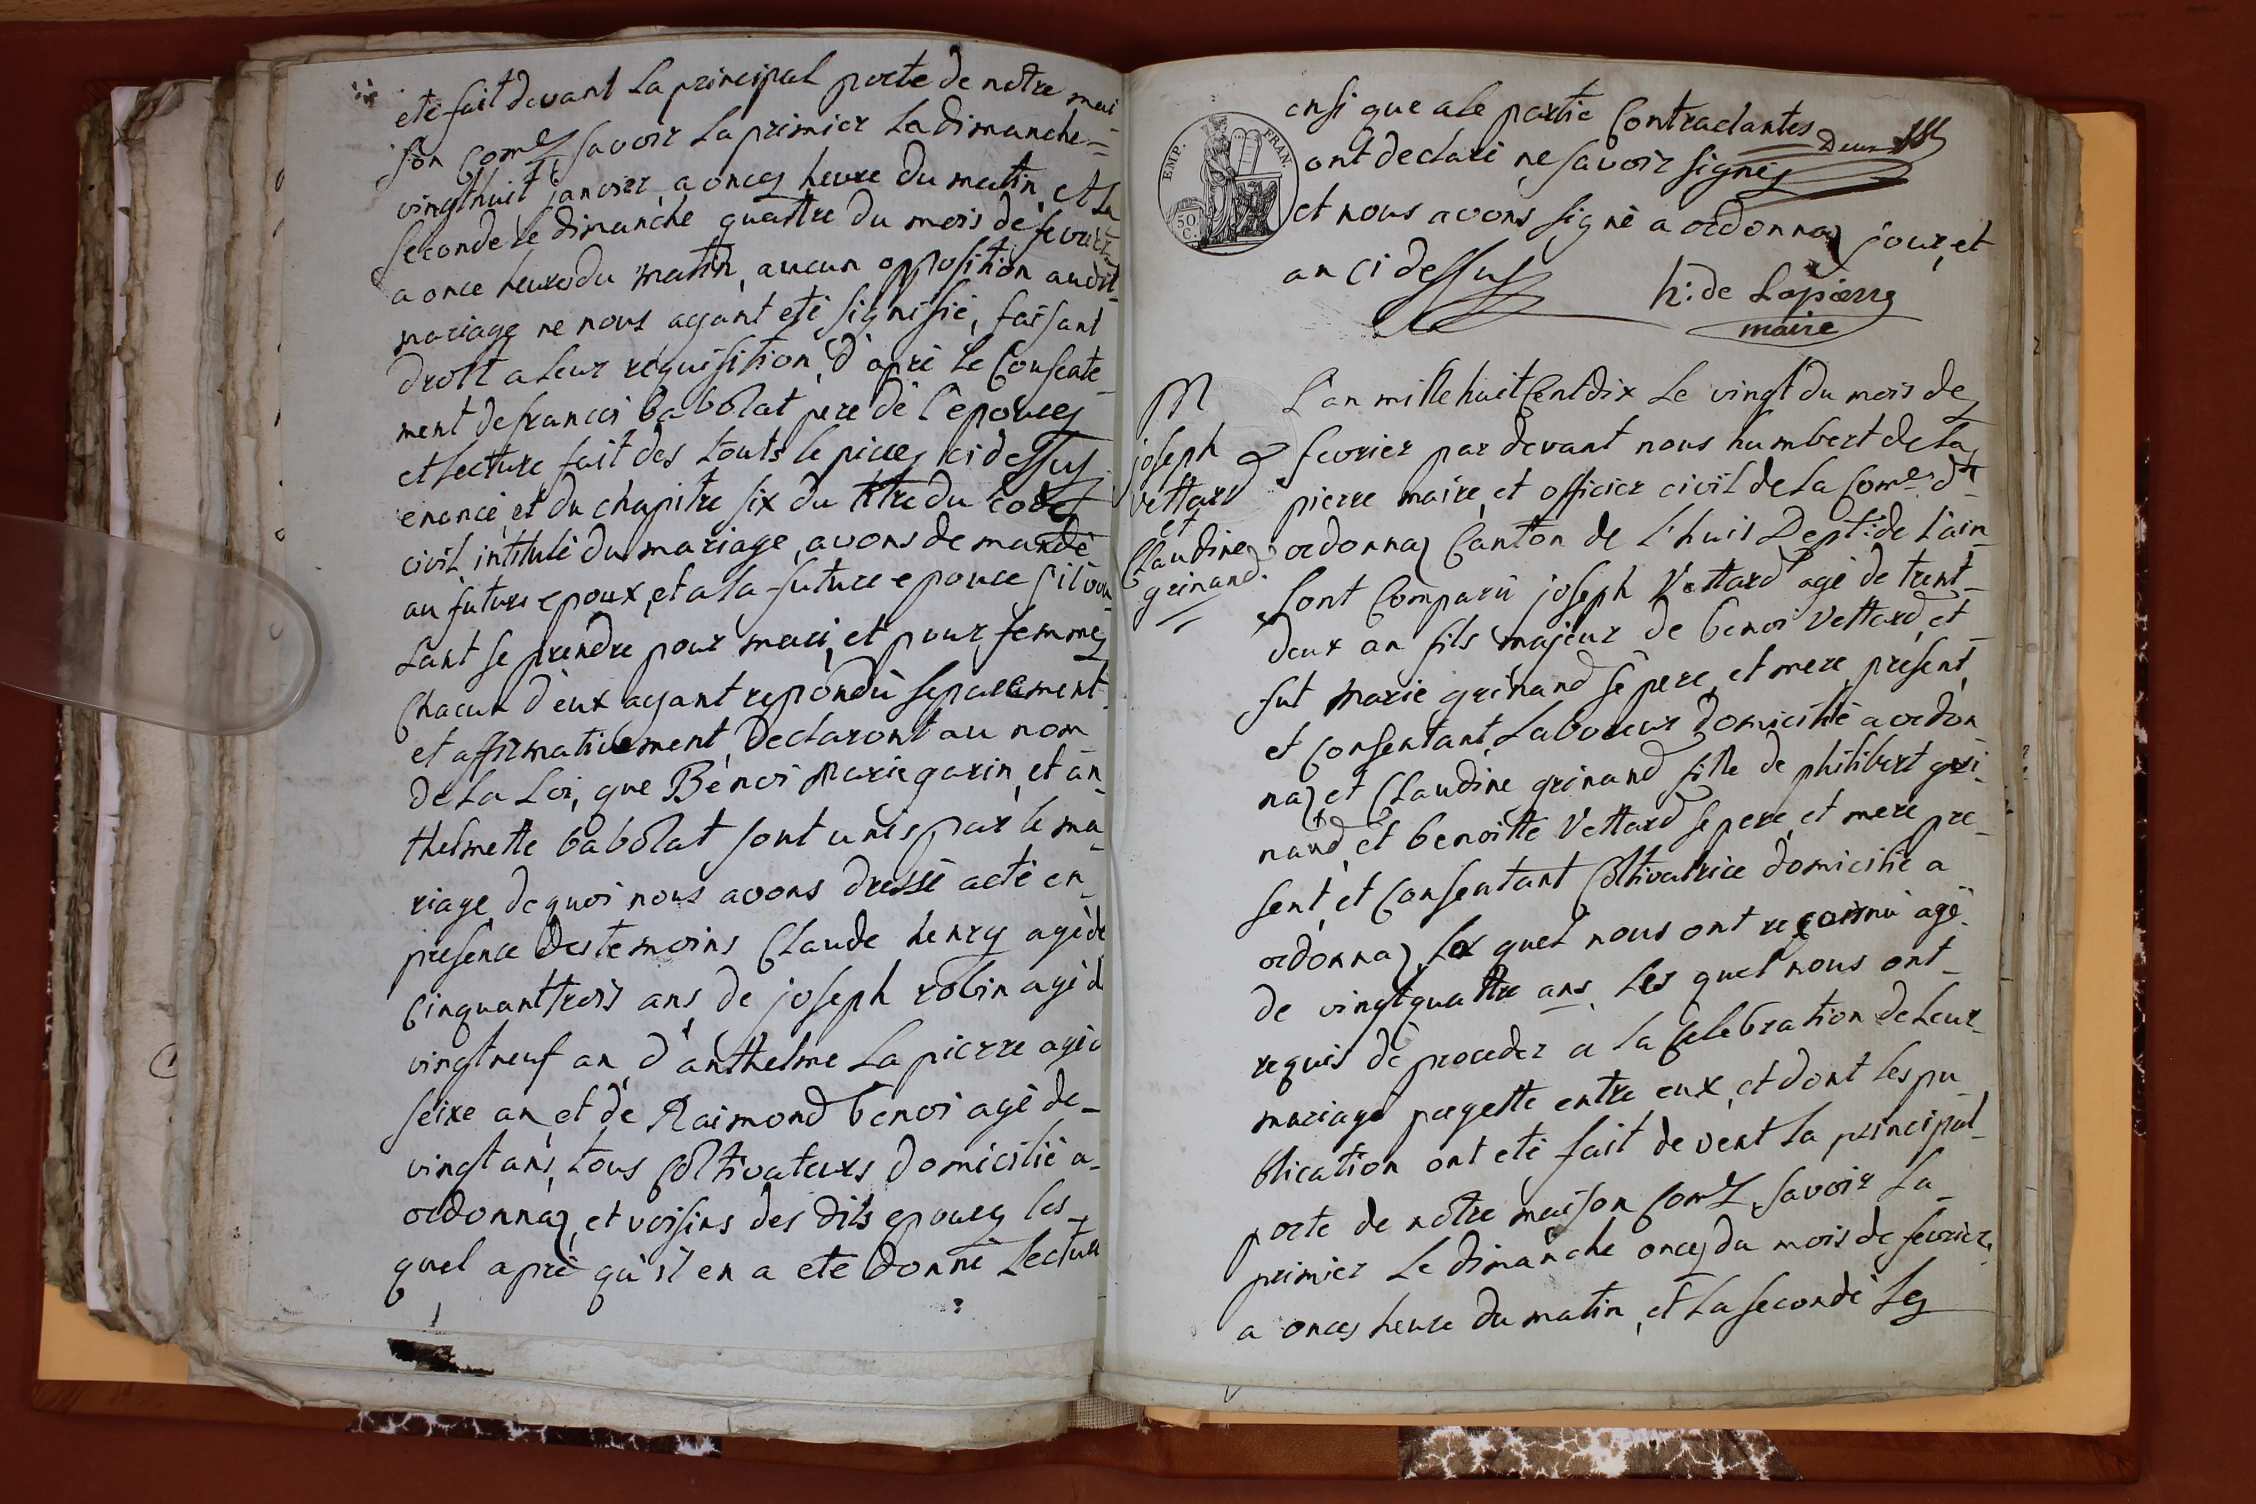 eté fait devant La principal porte de nôtre mai-
son Comle savoir La primier La dimanche
vingthuit janvier a once heure du matin, et La
seconde le dimanche quattre du mois de fevrier
a once heure du matin, aucun opposition audit
mariage ne nous ayant eté signifié, faisant
droit a leur réquisition, d'apré le Consente-
ment de francoi babolat pere de l'epouce
et lecture fait des touts le piece ci dessus
enoncié, et du chapitre six du titre du code
civil intitulé du mariage, avons demandé
au futurs epoux, et a la future epouce s'il veu-
lant se prendre pour mari, et pour femme
Chacun d'eux ayant répondù séparément
et affirmativement, Declaront au nom
de La Loi, que Bénoi Marie garin, et an-
thelmette babolat sont unis par le ma-
riage, de quoi nous avons dressé acte en
presence des temoins Claude henry agè de
Cinquanttrois ans, de joseph robin agè d
vingtneuf an, d'anthelme Lapierre agè d
seixe an, et de Raimond benoi agè de
vingt ans, tous Coltivateurs domicilié a
ordonnaz, et voisins des dits epouce, les
quel apré qu'il en a eté donné Lecture
ensi que a le partie Contractantes Deux
ont declaré ne savoir signé
et nous avons signé a ordonnaz jour, et
an ci dessus
h: de Lapierre
maire
EMP. FRAN.
50 C.
M
joseph
vettard
et
Claudine
grinand.
L'an mille huit Cent dix Le vingt du mois de
fevrier par devant nous humbert de la
pierre maire, et officier civil de La Come dt
ordonnaz Canton de L'huis Dept: de l'ain
sont Comparù joseph Vettard agé de trent-
deux an fils majeur de benoi Vettard, et
fut Marie grinand se pere, et mere, present,
et Consentant, Laboureur domicilié a ordon-
naz, et Claudine grinand fille de philibert gri-
nand, et benoitte Vettard se pere, et mere pre-
sent, et Consentant Coltivatrice domicilié a
ordonnaz, les quel nous ont reconnù agé
de vingtquattre ans, Les quel nous ont
requis de proceder a la Celebration de Leur
mariage progette entre eux, et dont les pu
blication ont eté fait devent La principal
porte de nôtre maison Comle, savoir La
primier Le dimanche once du mois de fevrier
a once heure du matin, et La seconde Le